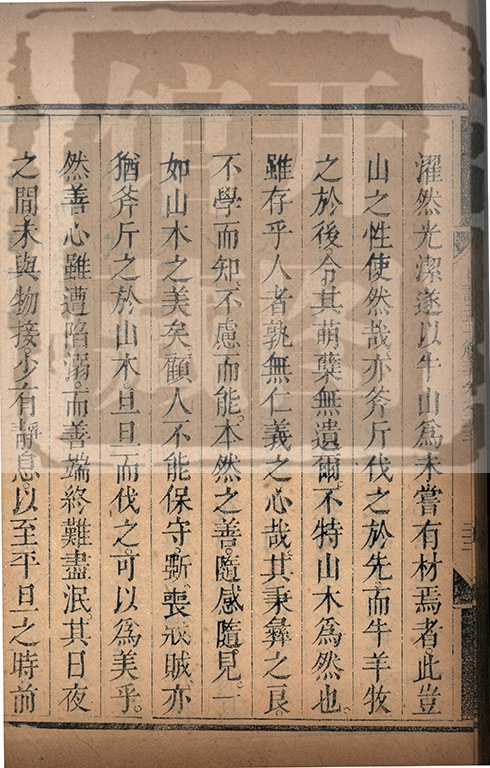 濯然光潔遂以牛山爲未嘗有材焉者此豈
山之性使然哉亦斧斤伐之於先而牛羊牧
之於後令其萌蘖無遺爾不特山木爲然也
雖存乎人者孰無仁義之心哉其秉彝之良
不學而知不慮而能本然之善隨感隨見一
如山木之美矣顧人不能保守斲喪戕賊亦
猶斧斤之於山木旦旦而伐之可以爲美乎
然善心雖遭陷溺而善端終難盡泯其日夜
之間未與物接少有靜息以至平旦之時前